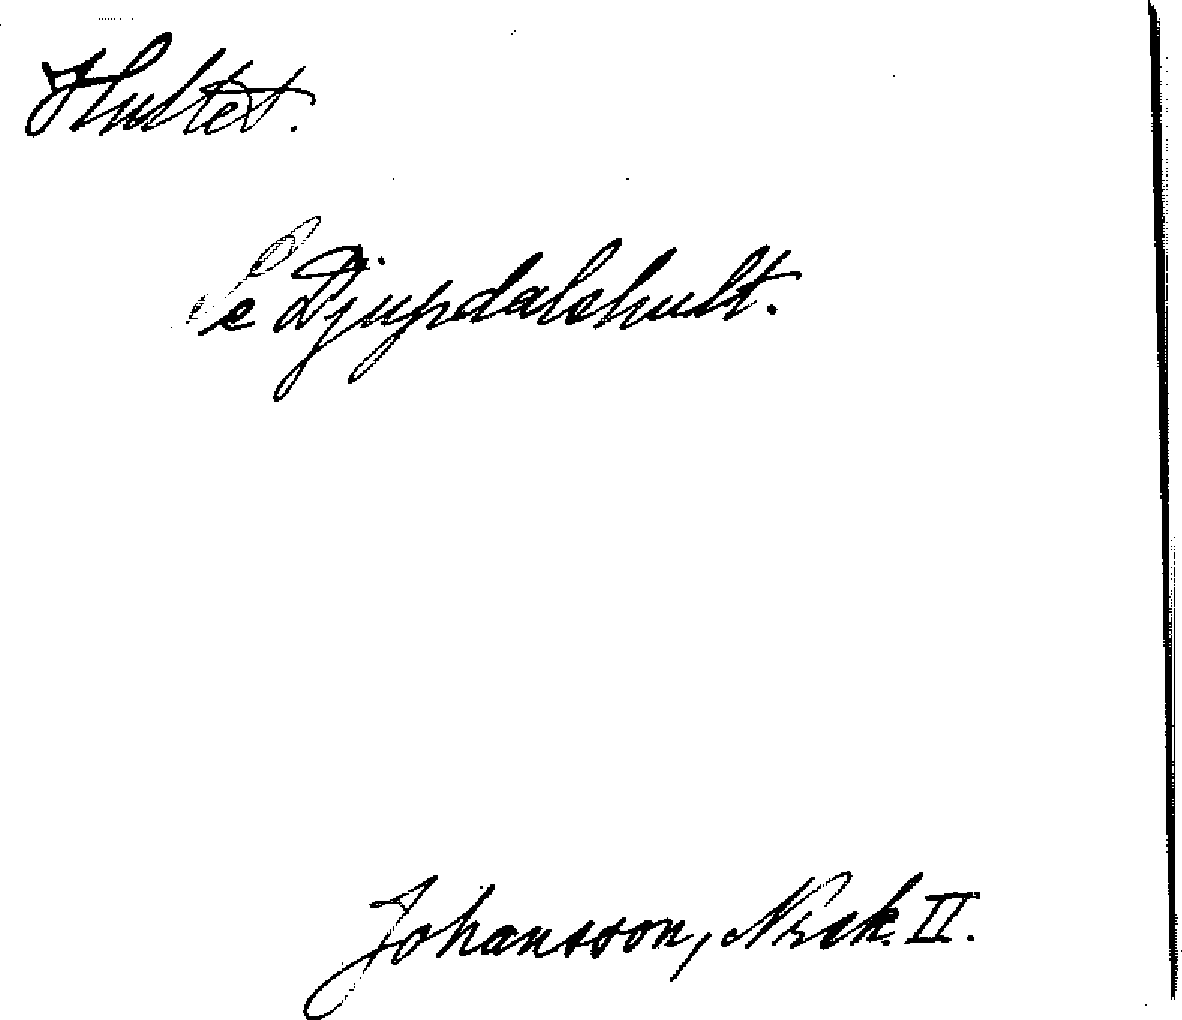 Hultet.
Se Djupdalshult.
Johansson, Nsck. II.